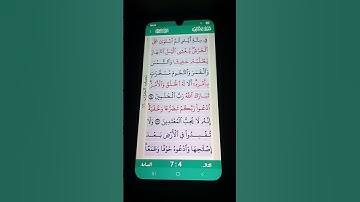 فِي سِتَّةِ أَيَّامٍ ثُمَّ ٱسۡتَوَىٰ عَلَى
ٱلۡعَرۡشِۖ يُغۡشِي ٱلَّيۡلَ ٱلنَّهَارَ
يَطۡلُبُهُۥ حَثِيثٗا وَٱلشَّمۡسَ
وَٱلۡقَمَرَ وَٱلنُّجُومَ مُسَخَّرَٰتِۭ
بِأَمۡرِهِۦٓۗ أَلَا لَهُ ٱلۡخَلۡقُ وَٱلۡأَمۡرُۗ
تَبَارَكَ ٱللَّهُ رَبُّ ٱلۡعَٰلَمِينَ
ٱدۡعُواْ رَبَّكُمۡ تَضَرُّعٗا وَخُفۡيَةًۚ
إِنَّهُۥ لَا يُحِبُّ ٱلۡمُعۡتَدِينَ وَلَا
تُفۡسِدُواْ فِي ٱلۡأَرۡضِ بَعۡدَ
إِصۡلَٰحِهَا وَٱدۡعُوهُ خَوۡفٗا وَطَمَعًاۚ
7:4